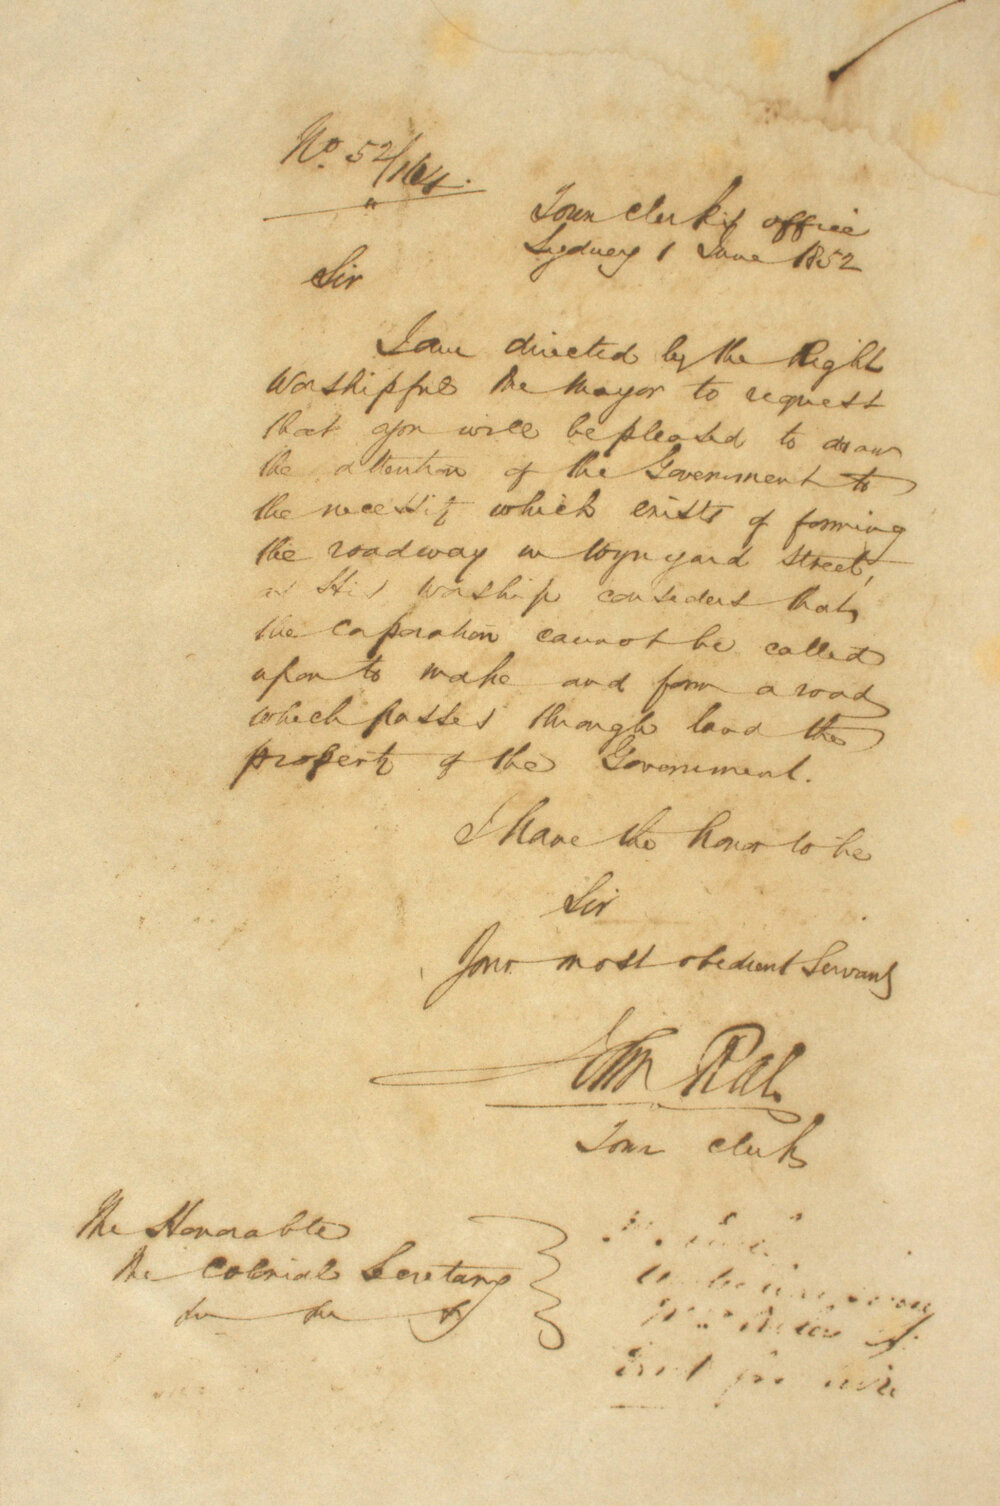 No. 52/164.
Town Clerk's office
Sydney 1 June 1852
Sir
I am directed by the Right
Worshipful the Mayor to request
that you will be pleased to draw
the attention of the Government to
the necessity which exists of forming
the roadway in Wynyard Street,
as His Worship considers that
the Corporation cannot be called
upon to make and form a road
which passes through land the
property of the Government.
I have the honor to be
Sir
Your most obedient Servant
John Rae
Town Clerk
The Honorable
The Colonial Secretary